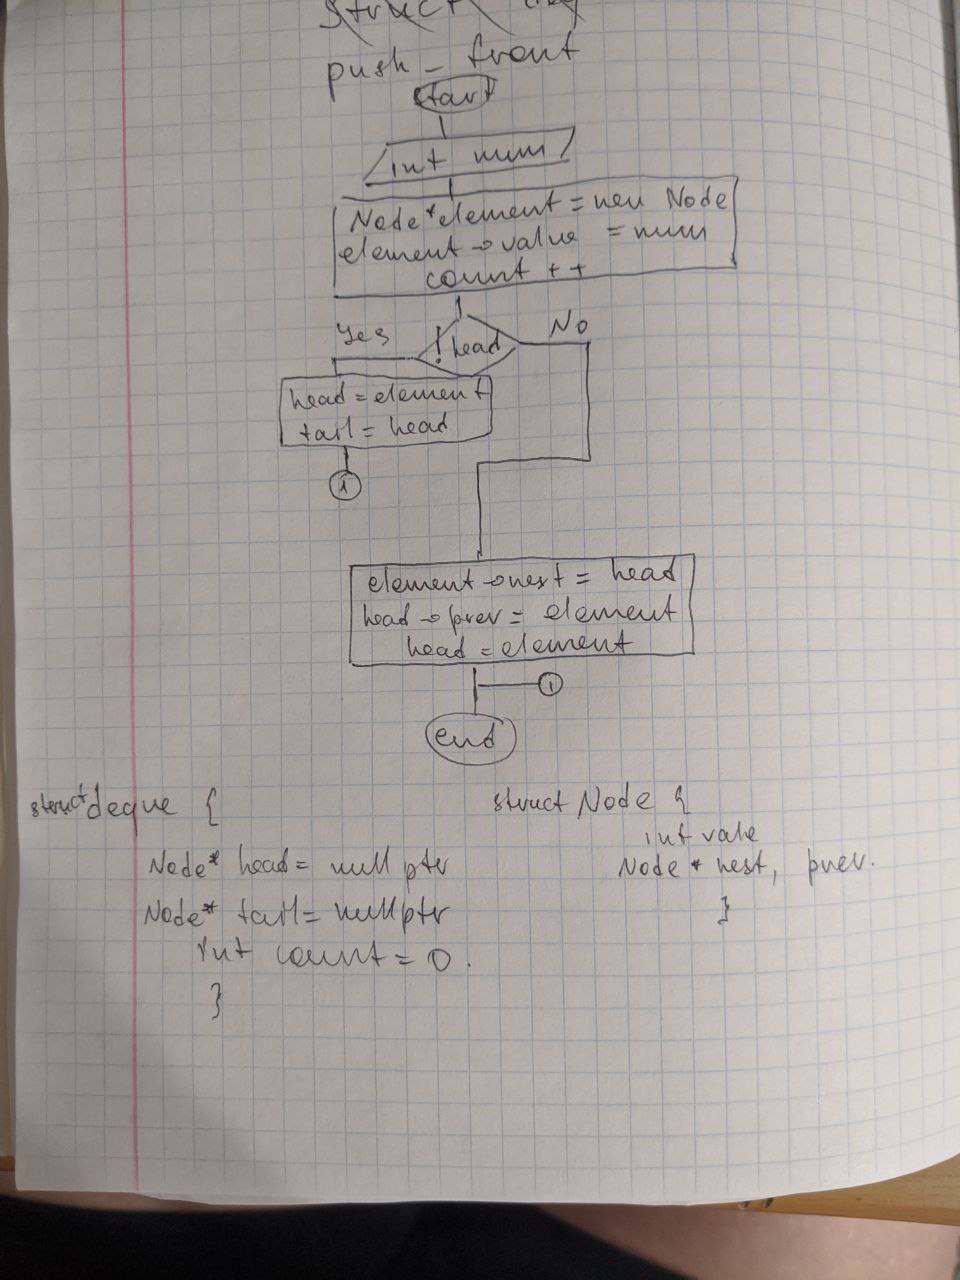 struct
push_front
start
int num
Node* element = new Node
element → value = num
count ++
Yes
!head
No
head = element
tail = head
1
element → next = head
head → prev = element
head = element
1
end
struct deque {
Node* head = nullptr
Node* tail = nullptr
int count = 0.
}
struct Node {
int value
Node * next, prev.
}